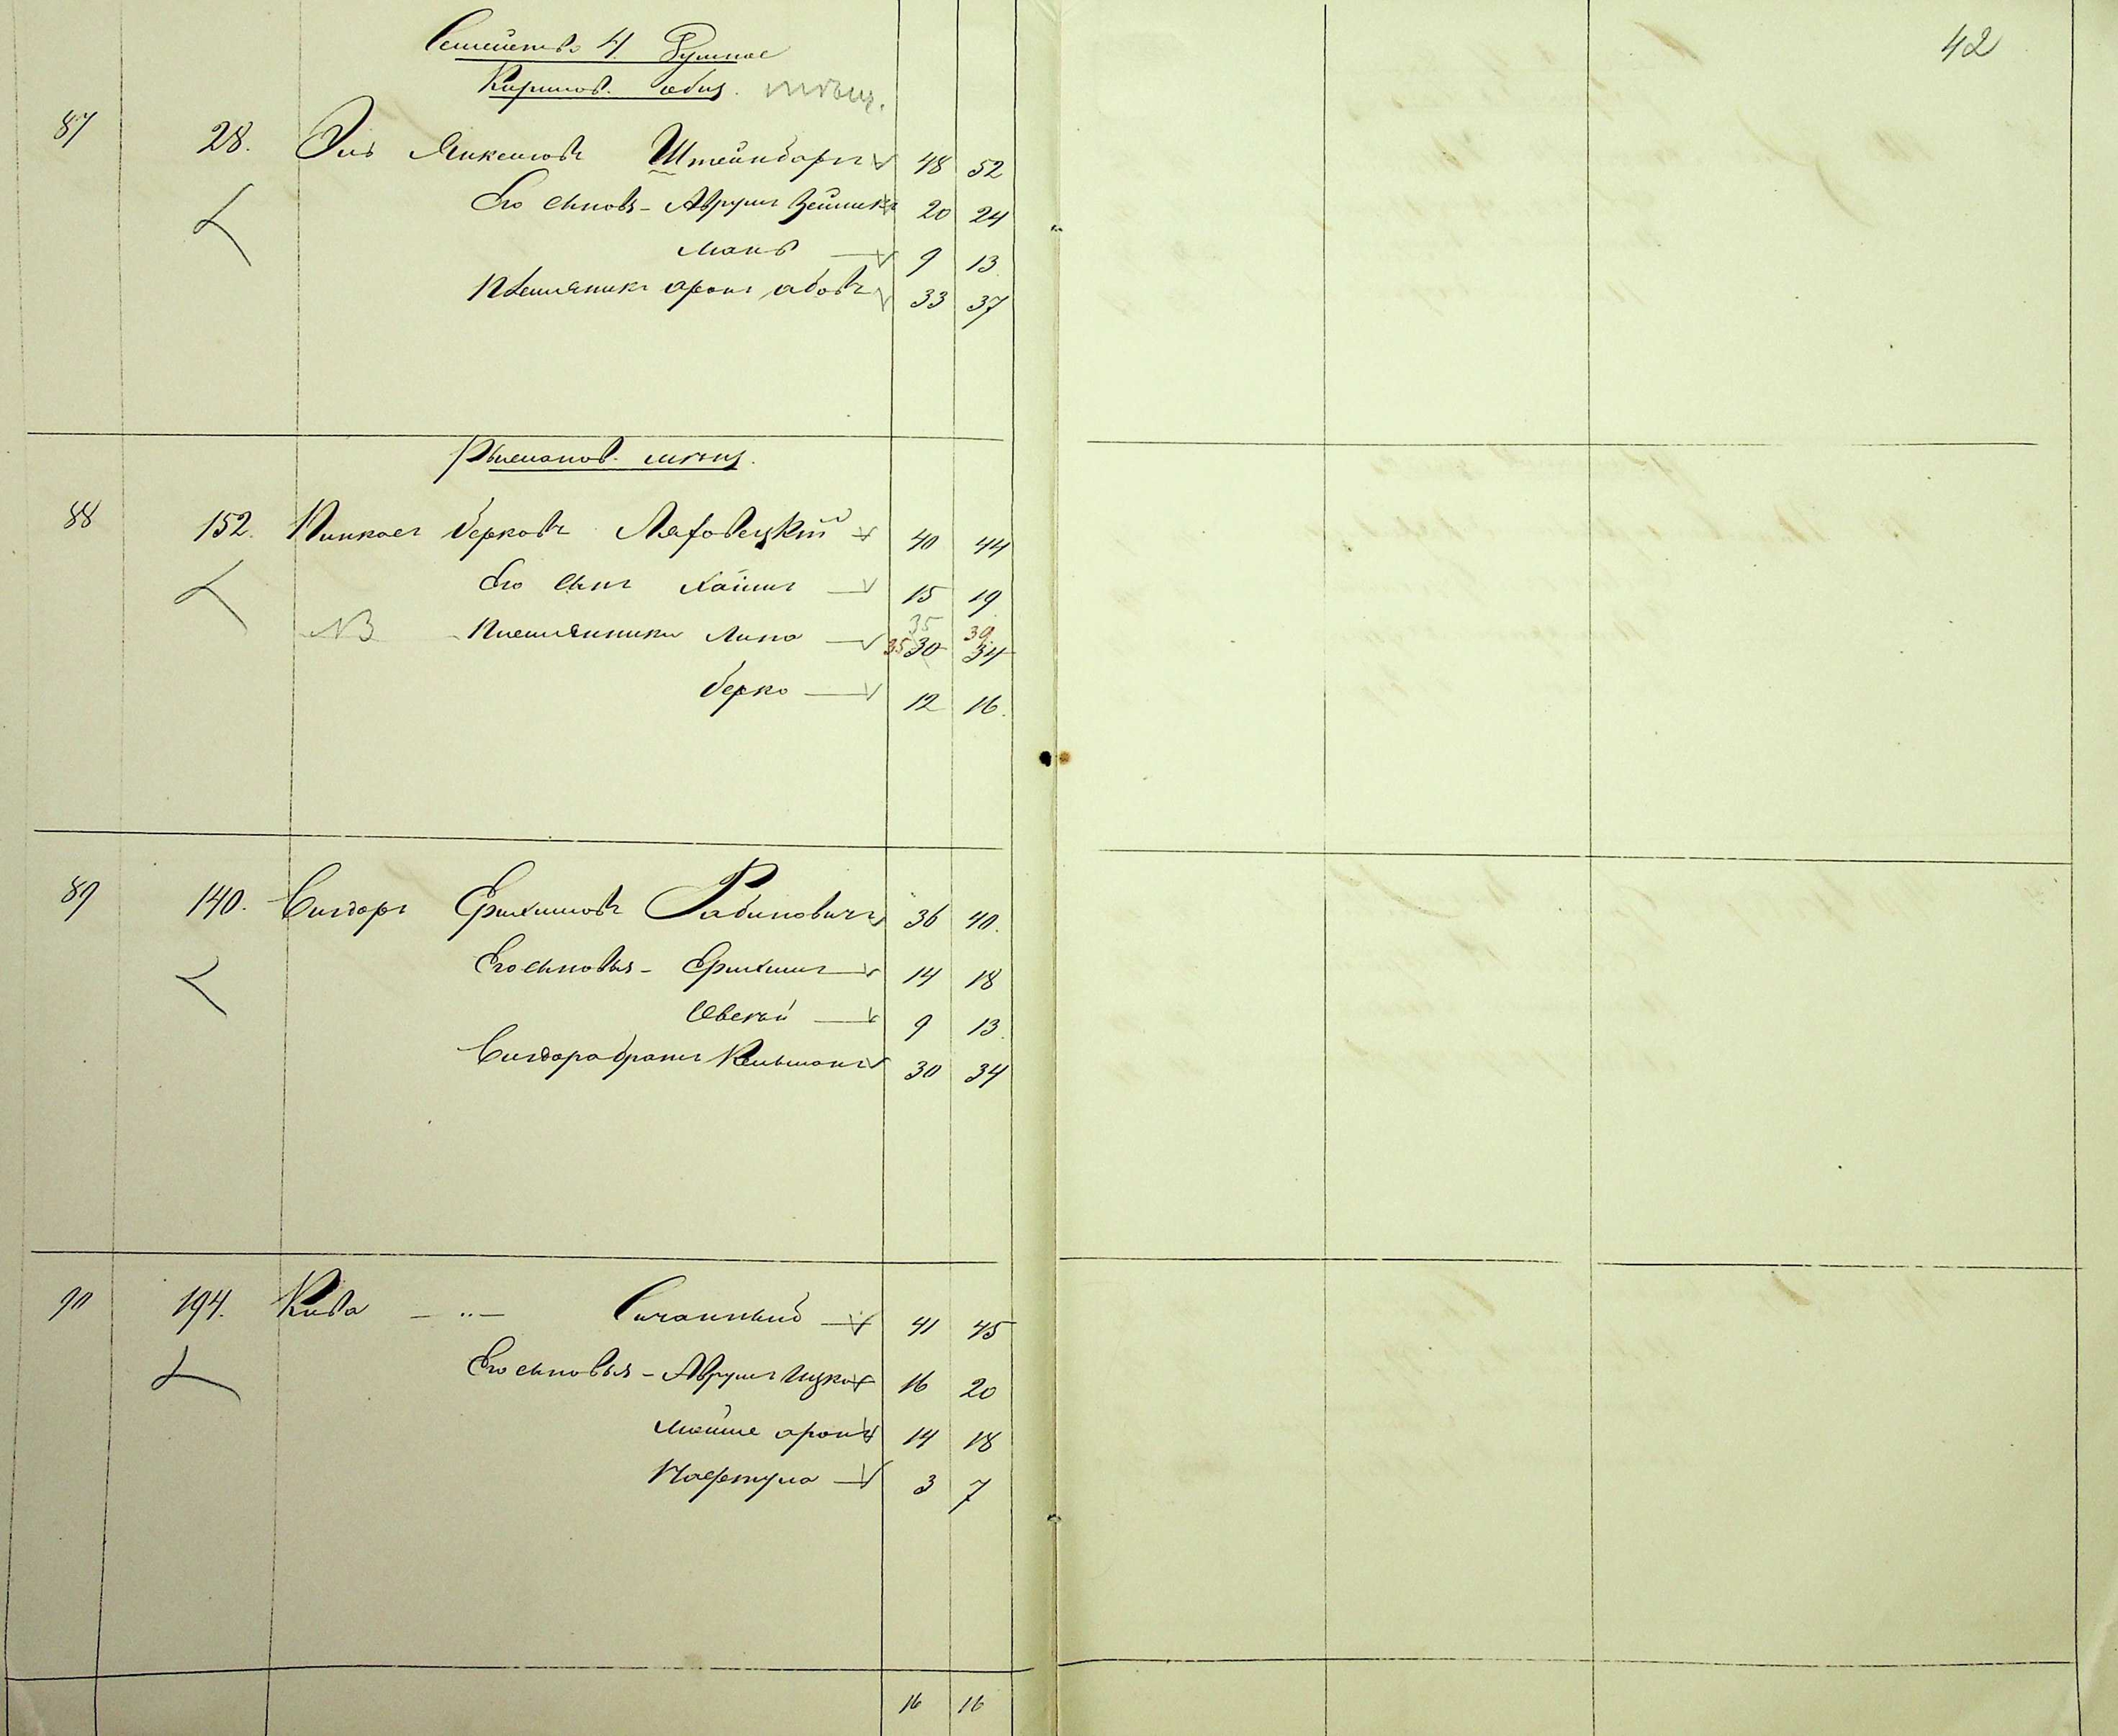 42
Семейство 4 Душное
Каришов. общ. мѣщ.
87 28. Эль Янкелювъ Штейнбаргъ 48 52
Его сыновья - Аврумъ Зейликъ 20 24
Манъ 9 13
Племяникъ аронъ абовъ 33 37
Рыманов. мѣщ.
88 152. Пинкасъ Берковъ Ляховецкій 40 44
Его сынъ Хаимъ 15 19
35 39
NB Племянники Липа 35 30 34
Берко 12 16.
89 140. Сигдоръ Ерухимовъ Рабиновичъ 36 40.
Его сыновья - Ерухимъ 14 18
Овсей 9 13
Сигдора братъ Кельманъ 30 34
90 194. Кива - " - Сичанный 41 45
Его сыновья - Аврумъ Ицко 16 20
Мойше аронъ 14 18
Нафтула 3 7
16 16